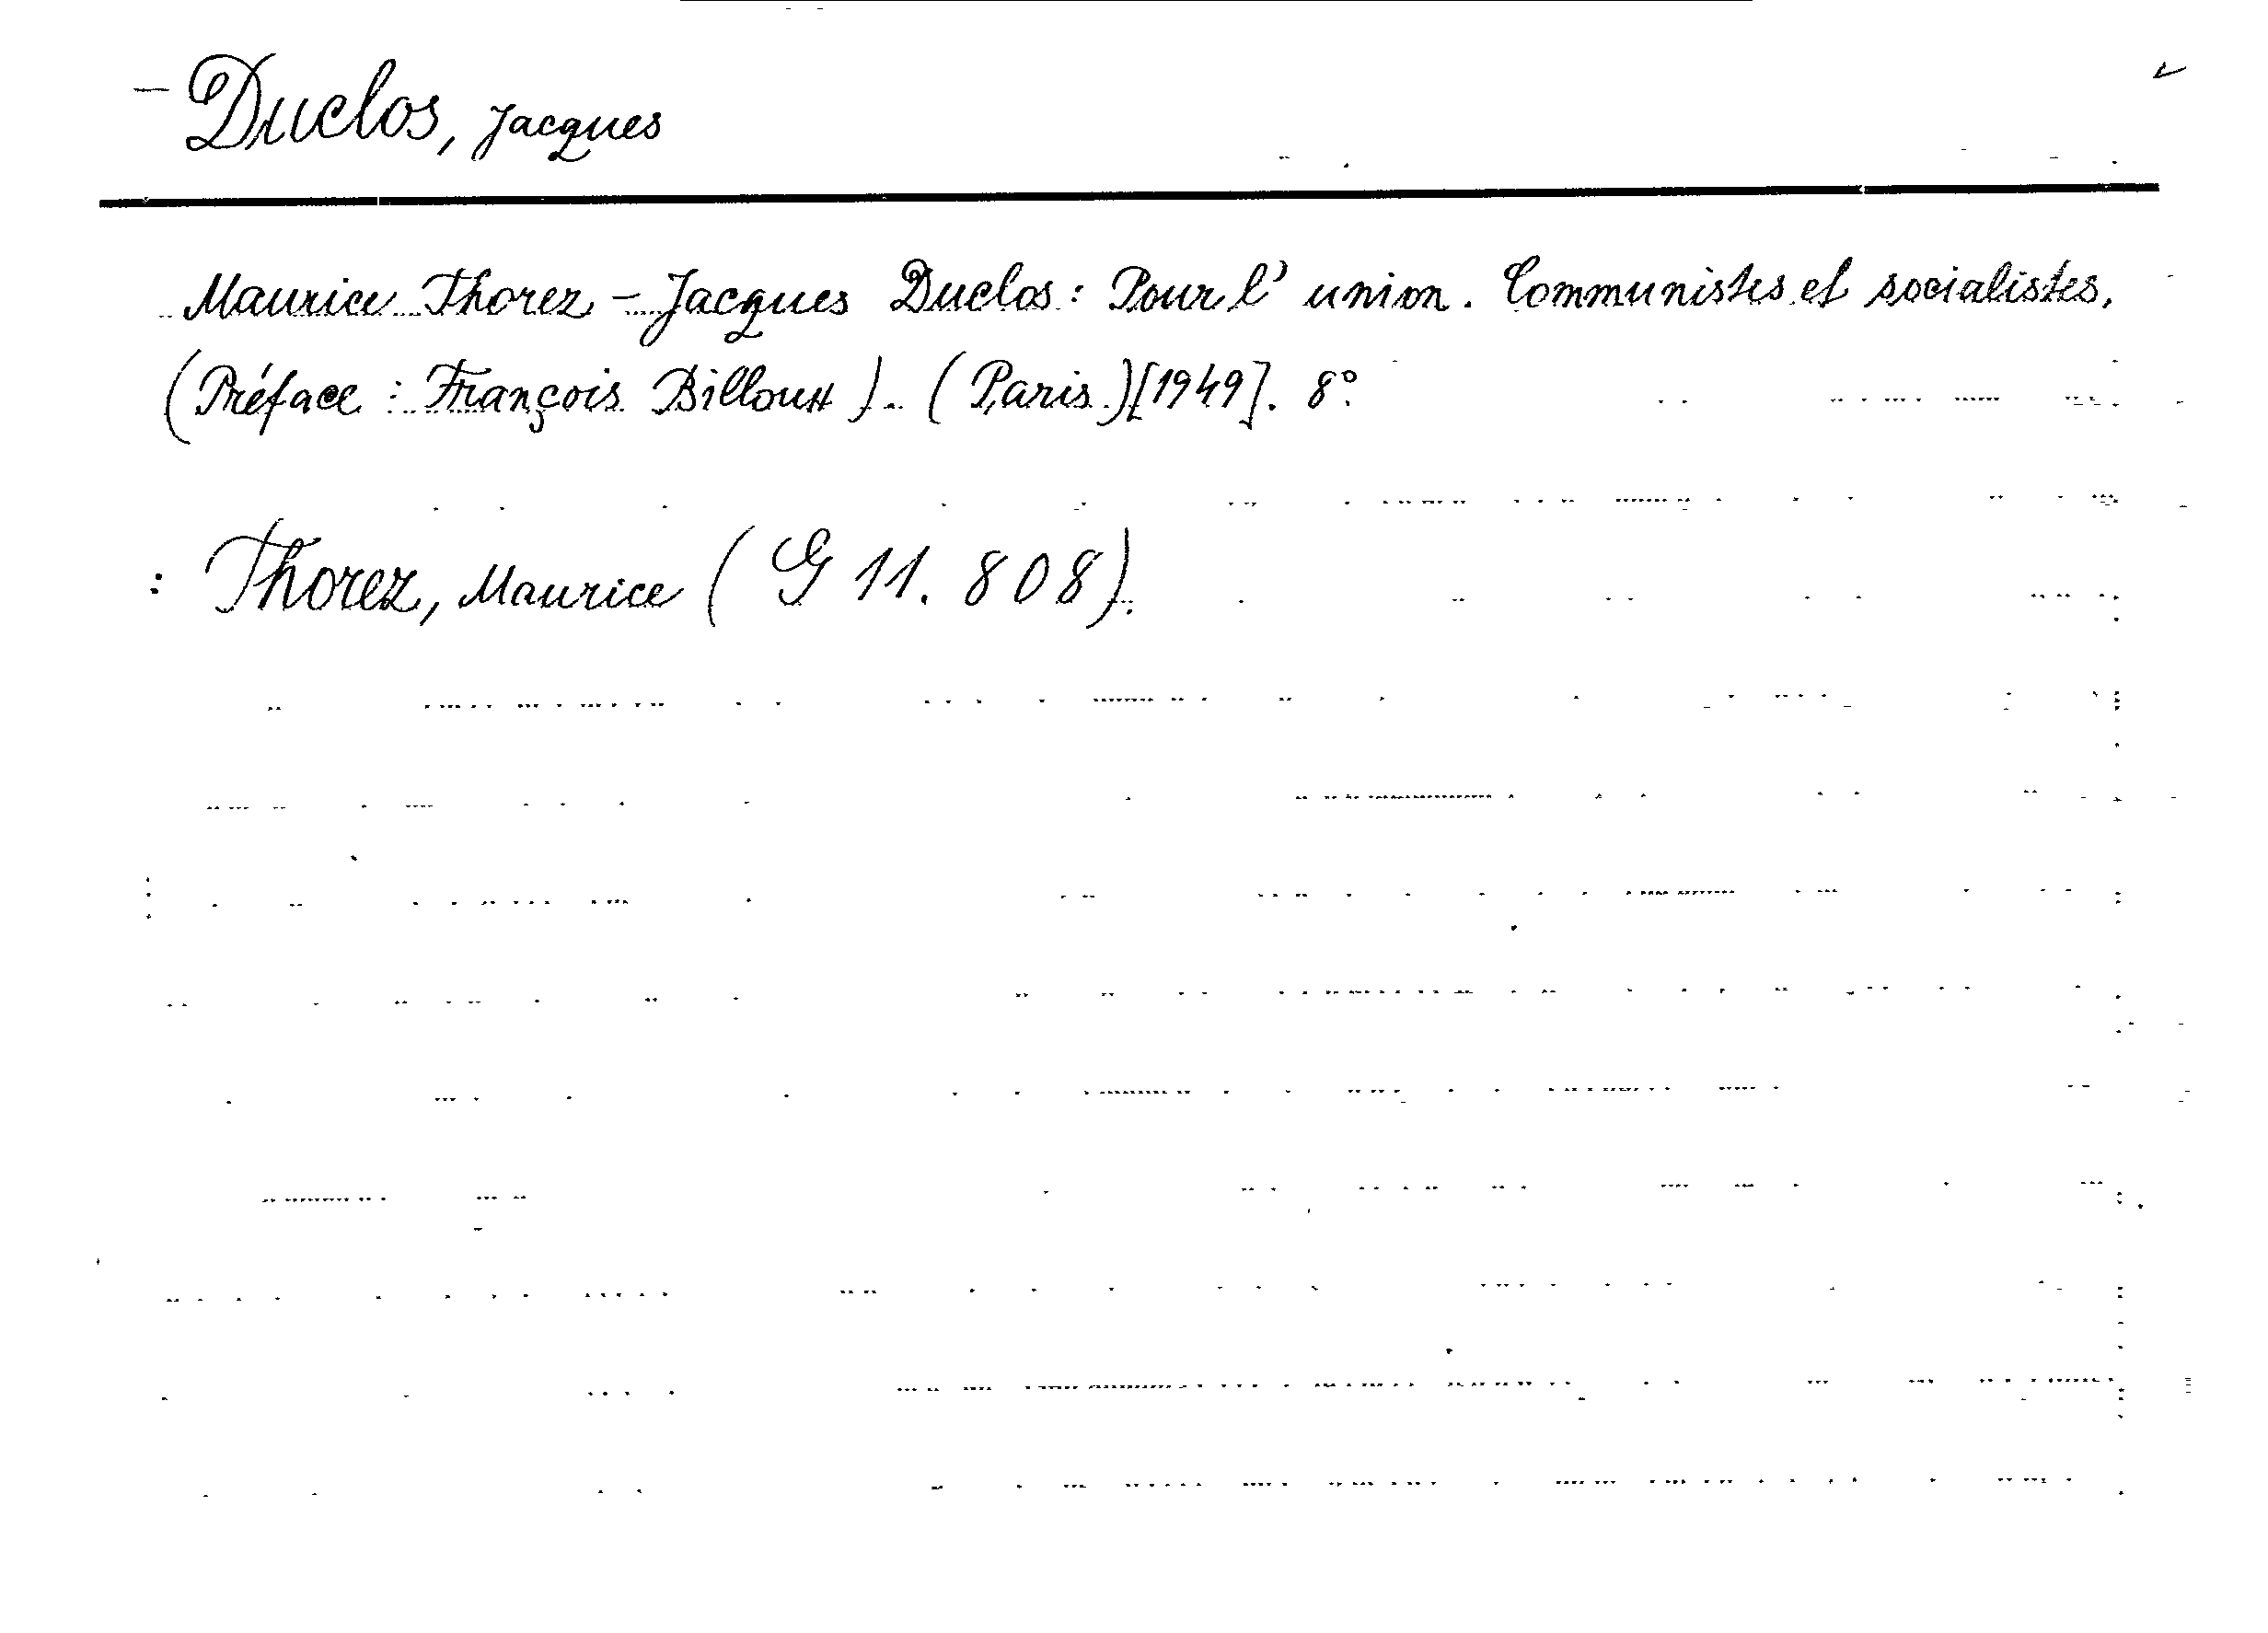 - Duclos, Jacques
Maurice Thorez - Jacques Duclos: Pour l' union. Communistes et socialistes.
(Préface: François Billoux). (Paris)[1949]. 8°.
: Thorez, Maurice (G 11. 808).